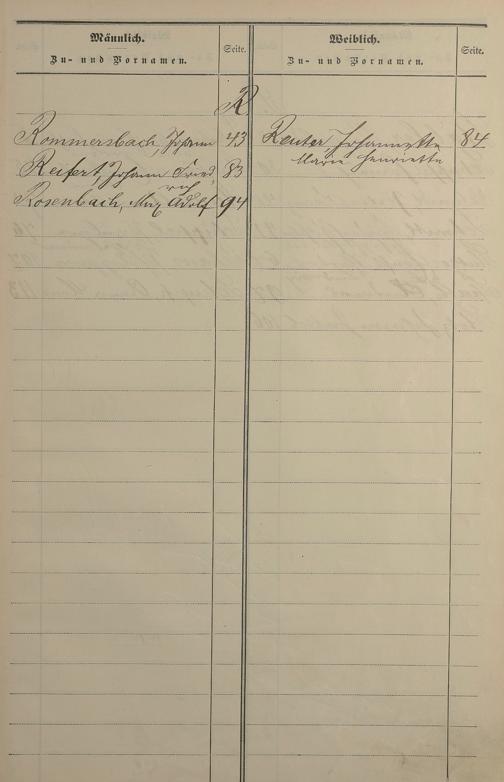 Männlich.
Zu- und Vornamen.
Seite.
Weiblich.
Zu- und Vornamen.
Seite.
R
Rommersbach, Johann 43
Reifert, Johann Fried 83
rich
Rosenbach, Max Adolf 94
Reuter, Johannette 84
Marie Henriette